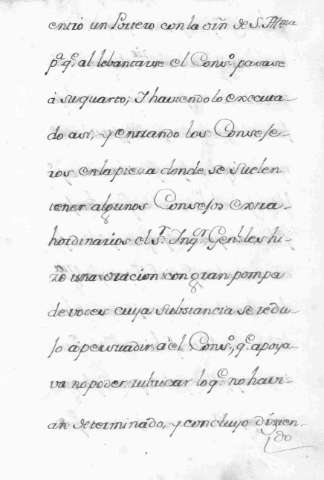 entró un Portero con la orn̄ de S. Illma
pa. qe. al lebantarse el Conso. pasase
á su quarto, Y haviendolo executa-
do asi, y entrando los Conseje-
ros en la pieza donde se suelen
tener algunos Consejos extra-
hordinarios el Sr. Inqr. Genl. les hi-
zo una oracion con gran pompa
de voces cuya substancia se redu-
jo á persuadir a el Conso. qe. apoya-
va no poder rubricar lo qe. no havi-
an determinado, y concluyo dixien-
do